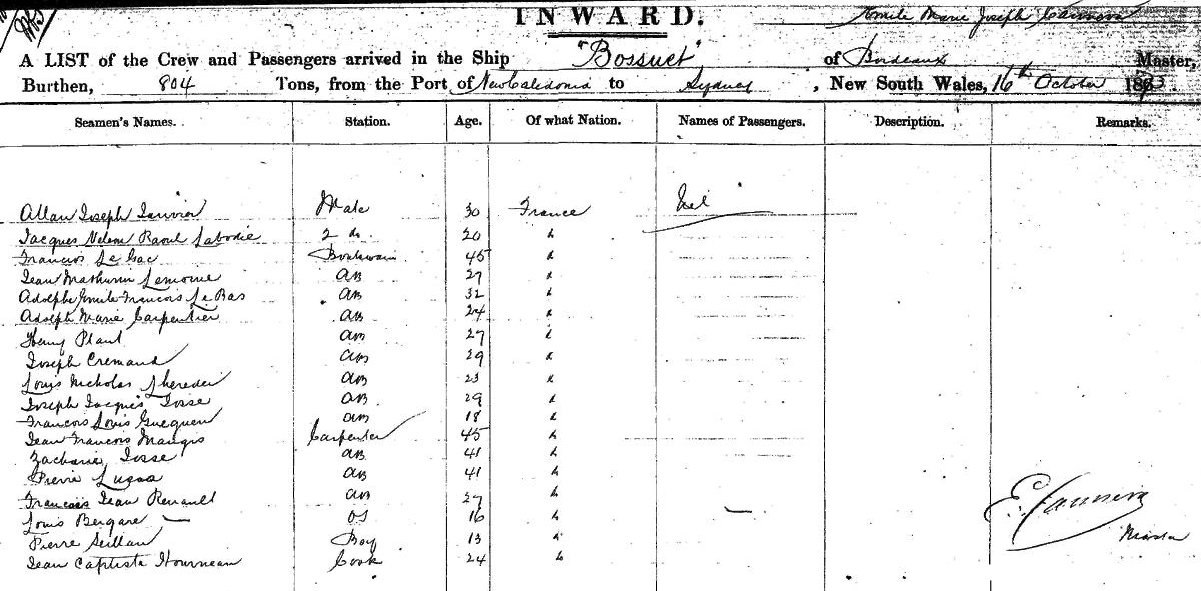 INWARD. Emile Marie Joseph
A LIST of the Crew and Passengers arrived in the Ship "Bossuet" of Bordeaux Master,
Burthen, 804 Tons, from the Port of New Caledonia to Sydney, New South Wales, 16th October 18
Seamen's Names. Station. Age. Of what Nation. Names of Passengers. Description. Remarks.
Allan Joseph Mate 30 France Nil
Jacques Raoul Labodie 2 do 20 "
Francois Le Gac Boatswain 45 "
Jean Mathurin Lemoine AB 27 "
Adolphe Emile Francois Le Bas AB 32 "
Adolph Marie Carpentier AB 24 "
Henry Plant AB 27 "
Joseph Cremand AB 29 "
Louis Nicholas AB 23 "
Joseph Jacques Josse AB 29 "
Francois Louis Gueguen AB 18 "
Jean Francois Maugis Carpenter 45 "
Zacharie Josse AB 41 "
Pierre AB 41 "
Francois Jean Renault AB 27 "
Louis Bergare — OS 16 " —
Pierre Seillan Boy 13 "
Jean Baptiste Cook 24 "
E.
Master